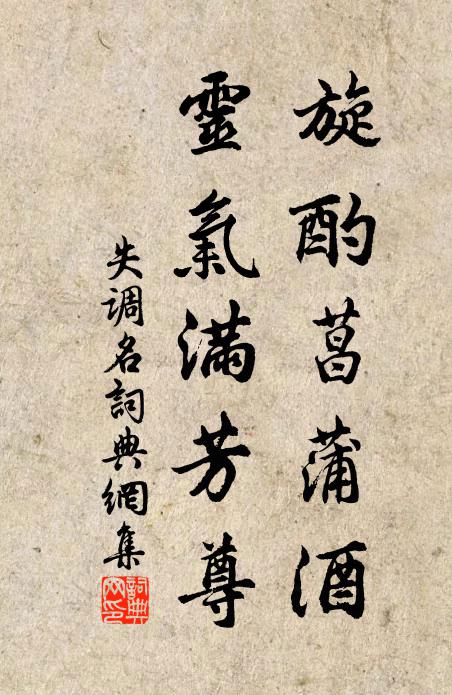 旋酌菖蒲酒
靈氣滿芳尊
失调名詞典網集
詞典
网印